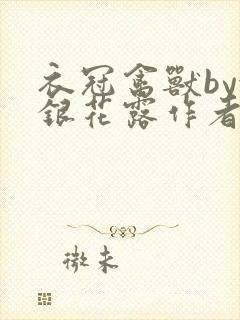 衣冠禽獸by
銀花露作者
微末